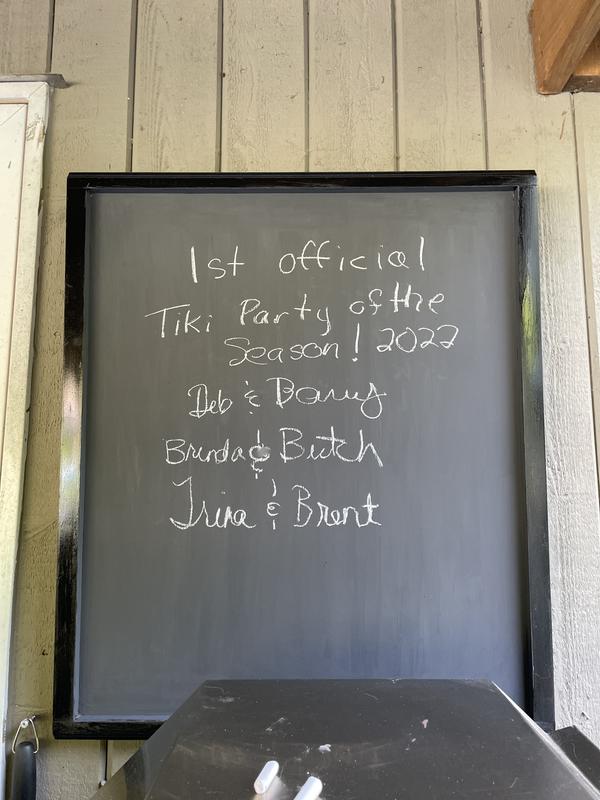 1st official
Tiki Party of the
Season! 2022
Deb & Barry
Brenda & Butch
Trina & Brent